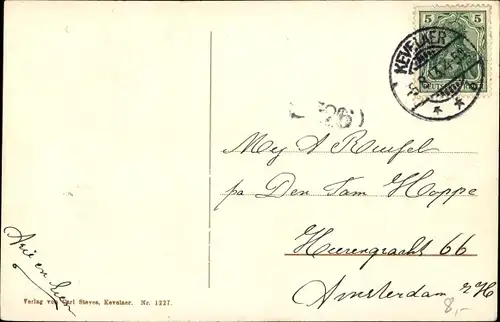 5 5
KEVELAER
(26)
Mej A Reufel
pa Den Tam Hoppe
Heerengracht 66
Amsterdam
8,-
Arie en
Verlag von Carl Steves, Kevelaer. Nr. 1227.